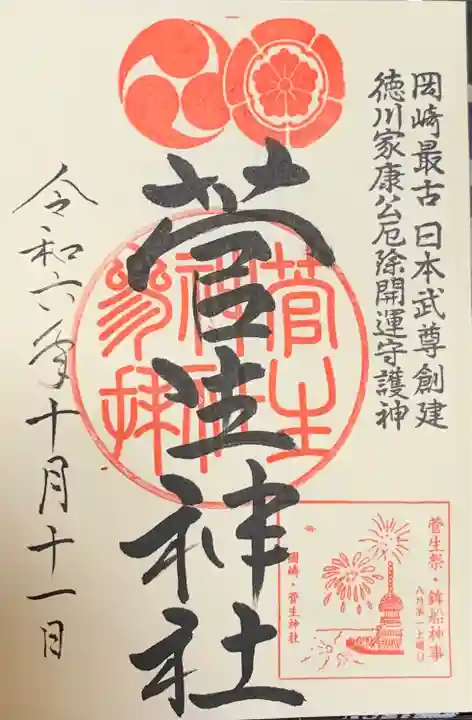 岡崎最古 日本武尊創建
徳川家康公厄除開運守護神
菅生神社
菅生神社参拝
令和六年十月十一日
菅生祭・鉾船神事
八月第一土曜日
岡崎・菅生神社